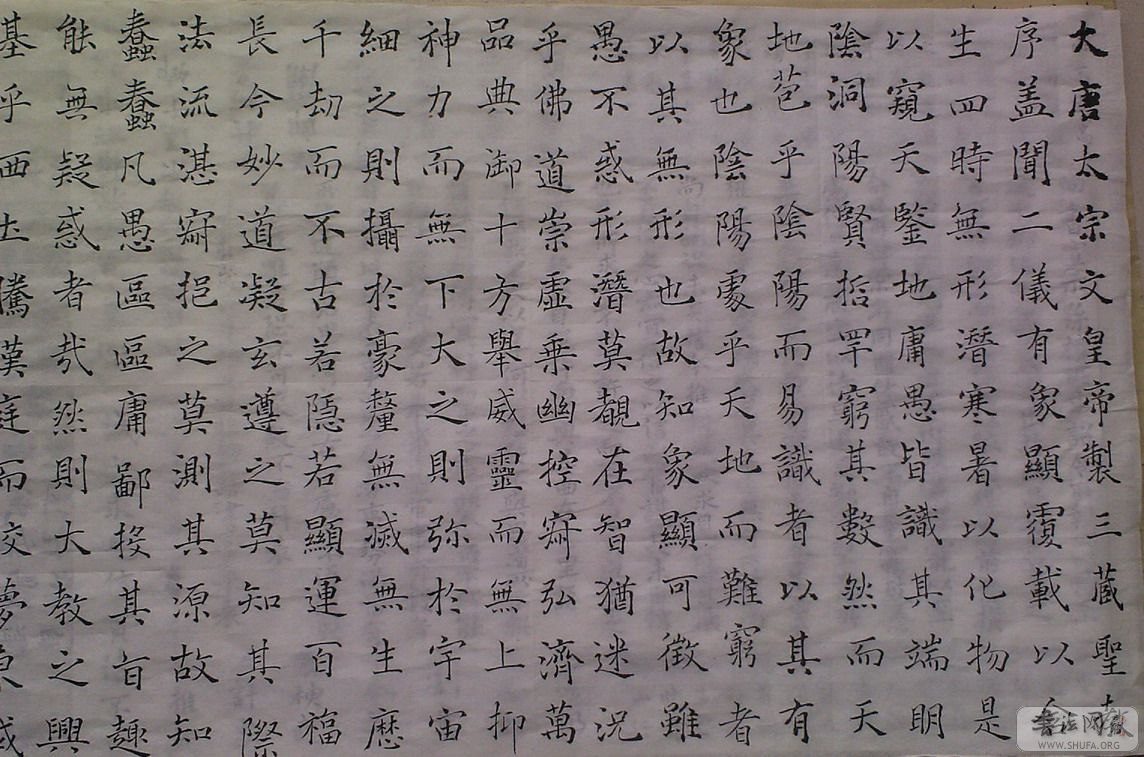 大唐太宗文皇帝製三藏聖
序盖聞二儀有象顯覆載以
生四時無形潛寒暑以化物是
以窺天鑒地庸愚皆識其端明
陰洞陽賢哲罕窮其數然而天
地苞乎陰陽而易識者以其有
象也陰陽處乎天地而難窮者
以其無形也故知象顯可徵雖
愚不惑形潛莫覩在智猶迷況
乎佛道崇虛乘幽控寂弘濟萬
品典御十方舉威靈而無上抑
神力而無下大之則弥於宇宙
細之則攝於豪釐無滅無生歷
千劫而不古若隱若顯運百福
長今妙道凝玄遵之莫知其際
法流湛寂挹之莫測其源故知
蠢蠢凡愚區區庸鄙投其旨趣
能無疑惑者哉然則大教之興
基乎西土騰漢庭而
WWW.SHUFA.ORG